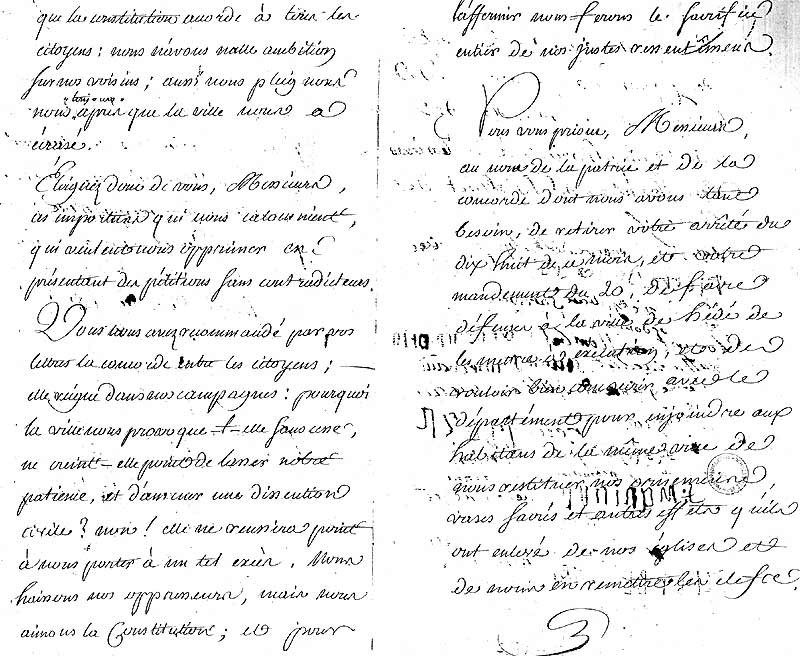 que la constitution accorde à tous les
citoyens : nous n'avons nulle ambition
sur nos voisins ; aussi nous plaignons
nous "toujours" après que la ville nous a
écrasé.
Éloignez donc de vous, Messieurs,
ces imposteurs qui nous calomnient,
qui veulent nous opprimer en
présentant des pétitions sans contradicteurs.
Vous nous avez recommandé par vos
lettres la concorde entre les citoyens ;
elle règne dans nos campagnes : pourquoi
la ville nous provoque-t-elle sans cesse,
ne craint-elle point de lasser notre
patience, et d'amener une dissention
civile ? non ! elle ne reussira point
à nous porter à un tel excès. Nous
haissons nos oppresseurs, mais nous
aimons la Constitution ; et pour
l'affermir nous ferons le sacrifice
entier de nos justes ressentiments.
Nous vous prions, Messieurs,
au nom de la patrie et de la
concorde dont nous avons tant
besoin, de retirer votre arrêté du
dix huit de ce mois, et votre
mandement du 20, de faire
défenses à la ville de hédé de
les mettre à exécution, et de
vouloir bien concourir avec le
département pour enjoindre aux
habitans de la même ville de
nous restituer nos ornements,
vases sacrés et autres effets qu'ils
ont enlevé de nos églises et
de nous en remettre les clefs.